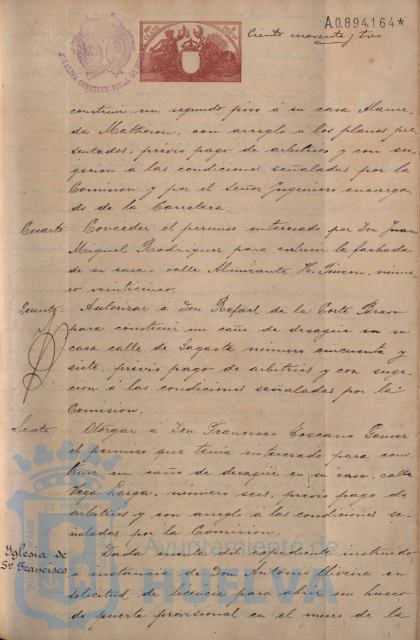 A.0.894,164*
Ciento noventa y tres
ALCALDIA CONSTITUCIONAL DE
construir un segundo piso á su casa Alame-
da Matheson, con arreglo á los planos pre-
sentados, previo pago de arbitrios y con su-
gecion á las condiciones señaladas por la
Comision y por el Señor Ingeniero encarga-
do de la Carretera.
Cuarto: Conceder el permiso interesado por Don Juan
Miguel Rodriguez para enlucir la fachada
de su casa, calle Almirante H. Pinzon, núme-
ro veinticinco.
Quinto: Autorizar á Don Rafael de la Corte Bravo
para construir un caño de desagüe en su
casa calle de Sagasta número cincuenta y
siete, previo pago de arbitrios y con suge-
cion á las condiciones señaladas por la
Comision.
Sexto: Otorgar á Don Francisco Toscano
el permiso que tenia interesado para cons-
truir un caño de desagüe en su casa, calle
Vega Larga, número seis, previo pago de
arbitrios y con arreglo á las condiciones se-
ñaladas por la Comision.
Yglesia de
Sn Francisco
Dada cuenta del expediente instruido
á instancia de Don Antonio Oliveira en
solicitud de licencia para abrir un hueco
de puerta provisional en el muro de la
Ayuntamiento de
HUELVA